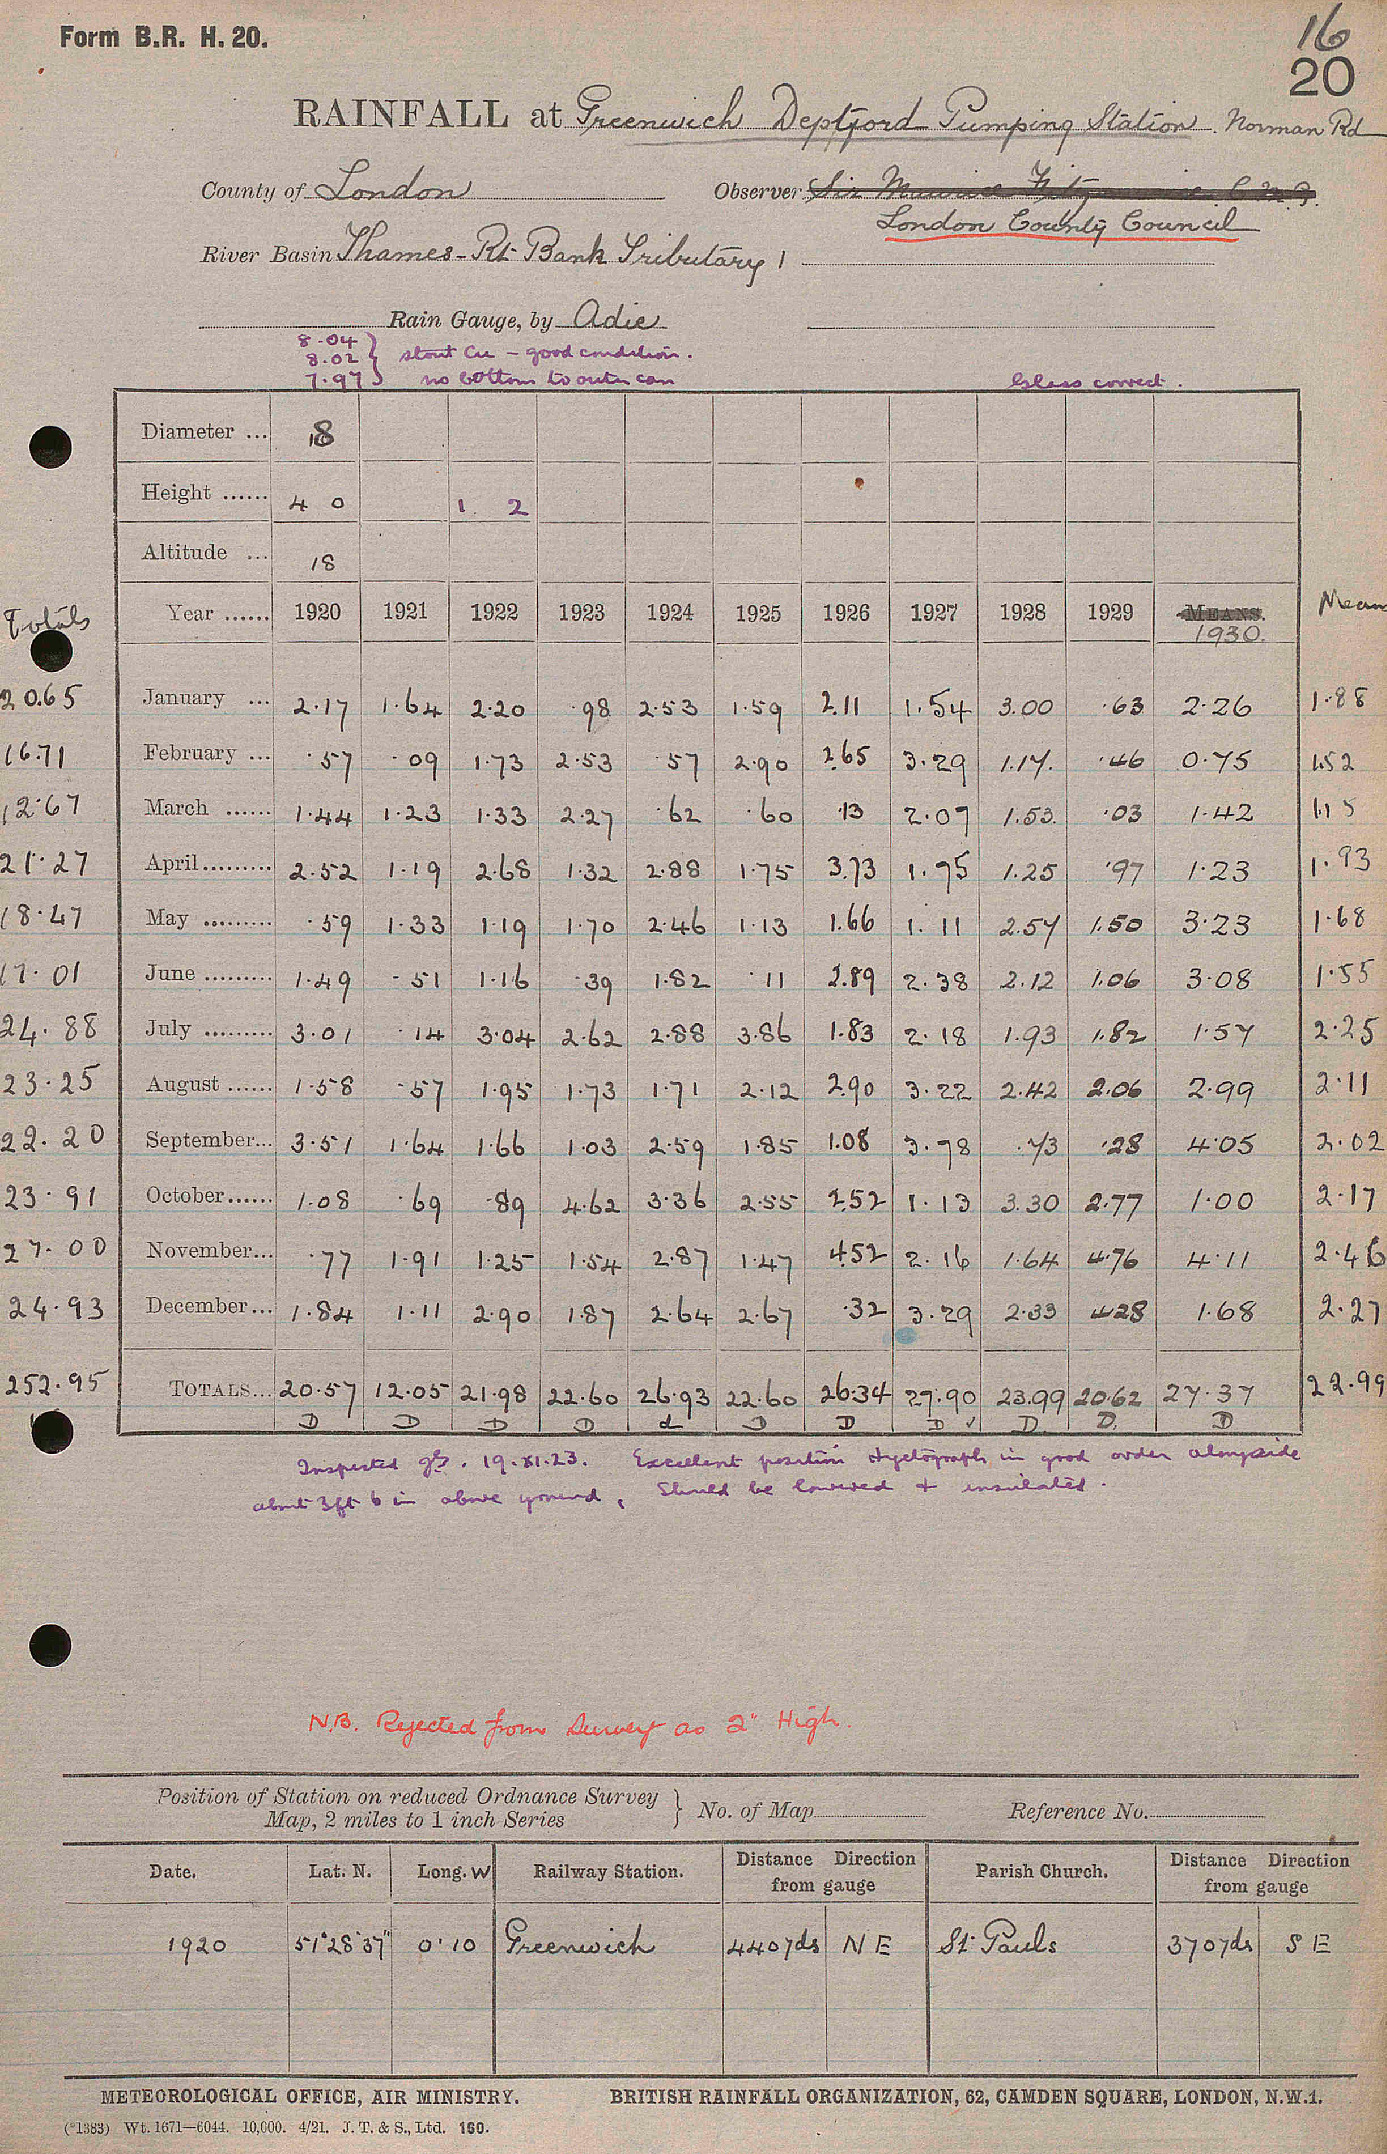 Form B.R. H. 20.
16
20
RAINFALL at Greenwich Deptford Pumping Station. Norman Rd
County of London Observer Sir Maurice
London County Council
River Basin Thames - Rt Bank Tributary 1
Rain Gauge, by Adie
8.04
8.02 } stout Cu - good condition.
7.97 no bottom to outer can Glass correct.
Diameter ... 8
Height ...... 4 0 1. 2
Altitude ... 18
Totals Year ...... 1920 1921 1922 1923 1924 1925 1926 1927 1928 1929 MEANS. Mean
1930.
20.65 January ... 2.17 1.64 2.20 .98 2.53 1.59 2.11 1.54 3.00 .63 2.26 1.88
16.71 February ... .57 .09 1.73 2.53 .57 2.90 2.65 3.29 1.17. .46 0.75 1.52
12.67 March ...... 1.44 1.23 1.33 2.27 .62 .60 .13 2.07 1.53. .03 1.42 1.15
21.27 April ......... 2.52 1.19 2.68 1.32 2.88 1.75 3.73 1.75 1.25 .97 1.23 1.93
18.47 May ......... .59 1.33 1.19 1.70 2.46 1.13 1.66 1.11 2.57 1.50 3.23 1.68
17.01 June ......... 1.49 .51 1.16 .39 1.82 .11 2.89 2.38 2.12 1.06 3.08 1.55
24.88 July ......... 3.01 .14 3.04 2.62 2.88 3.86 1.83 2.18 1.93 1.82 1.57 2.25
23.25 August ...... 1.58 .57 1.95 1.73 1.71 2.12 2.90 3.22 2.42 2.06 2.99 2.11
22.20 September... 3.51 1.64 1.66 1.03 2.59 1.85 1.08 3.78 .73 .28 4.05 2.02
23.91 October...... 1.08 .69 .89 4.62 3.36 2.55 2.52 1.13 3.30 2.77 1.00 2.17
27.00 November... .77 1.91 1.25 1.54 2.87 1.47 4.52 2.16 1.64 4.76 4.11 2.46
24.93 December... 1.84 1.11 2.90 1.87 2.64 2.67 .32 3.29 2.33 4.28 1.68 2.27
252.95 TOTALS... 20.57 12.05 21.98 22.60 26.93 22.60 26.34 27.90 23.99 20.62 27.37 22.99
D D D D d D D D ✓ D. D. D
Inspected 19.XI.23. Excellent position Hyetograph in good order alongside
about 3ft 6 in above ground, Should be lowered & insulated.
N.B. Rejected from Survey as 2" High.
Position of Station on reduced Ordnance Survey
Map, 2 miles to 1 inch Series } No. of Map Reference No.
Date. Lat. N. Long. W Railway Station. Distance Direction from gauge Parish Church. Distance Direction from gauge
1920 51°28'37" 0'10 Greenwich 440yds NE St Pauls 370yds SE
METEOROLOGICAL OFFICE, AIR MINISTRY. BRITISH RAINFALL ORGANIZATION, 62, CAMDEN SQUARE, LONDON, N.W.1.
(*1383) Wt. 1671—6044. 10,000. 4/21. J. T. & S., Ltd. 160.